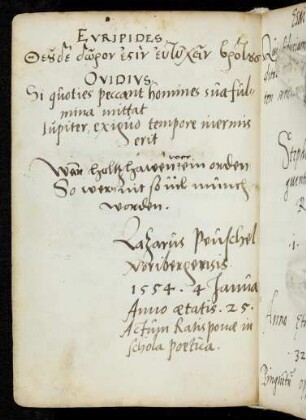 EVRIPIDES
Θεοῦ δὲ δῶρον ἐστὶν εὐτυχεῖν βροτούς
OVIDIVS
Si quoties peccant homines sua ful-
mina mittat
Iupiter, exiguo tempore inermis
erit
Wan holtz hawen wer ein orden
So wern nit so uil münch
worden.
Lazarus Peuschel
Noribergensis
1554. 4 Janua
Anno ætatis. 25.
Actum Ratisponæ in
schola poetica.